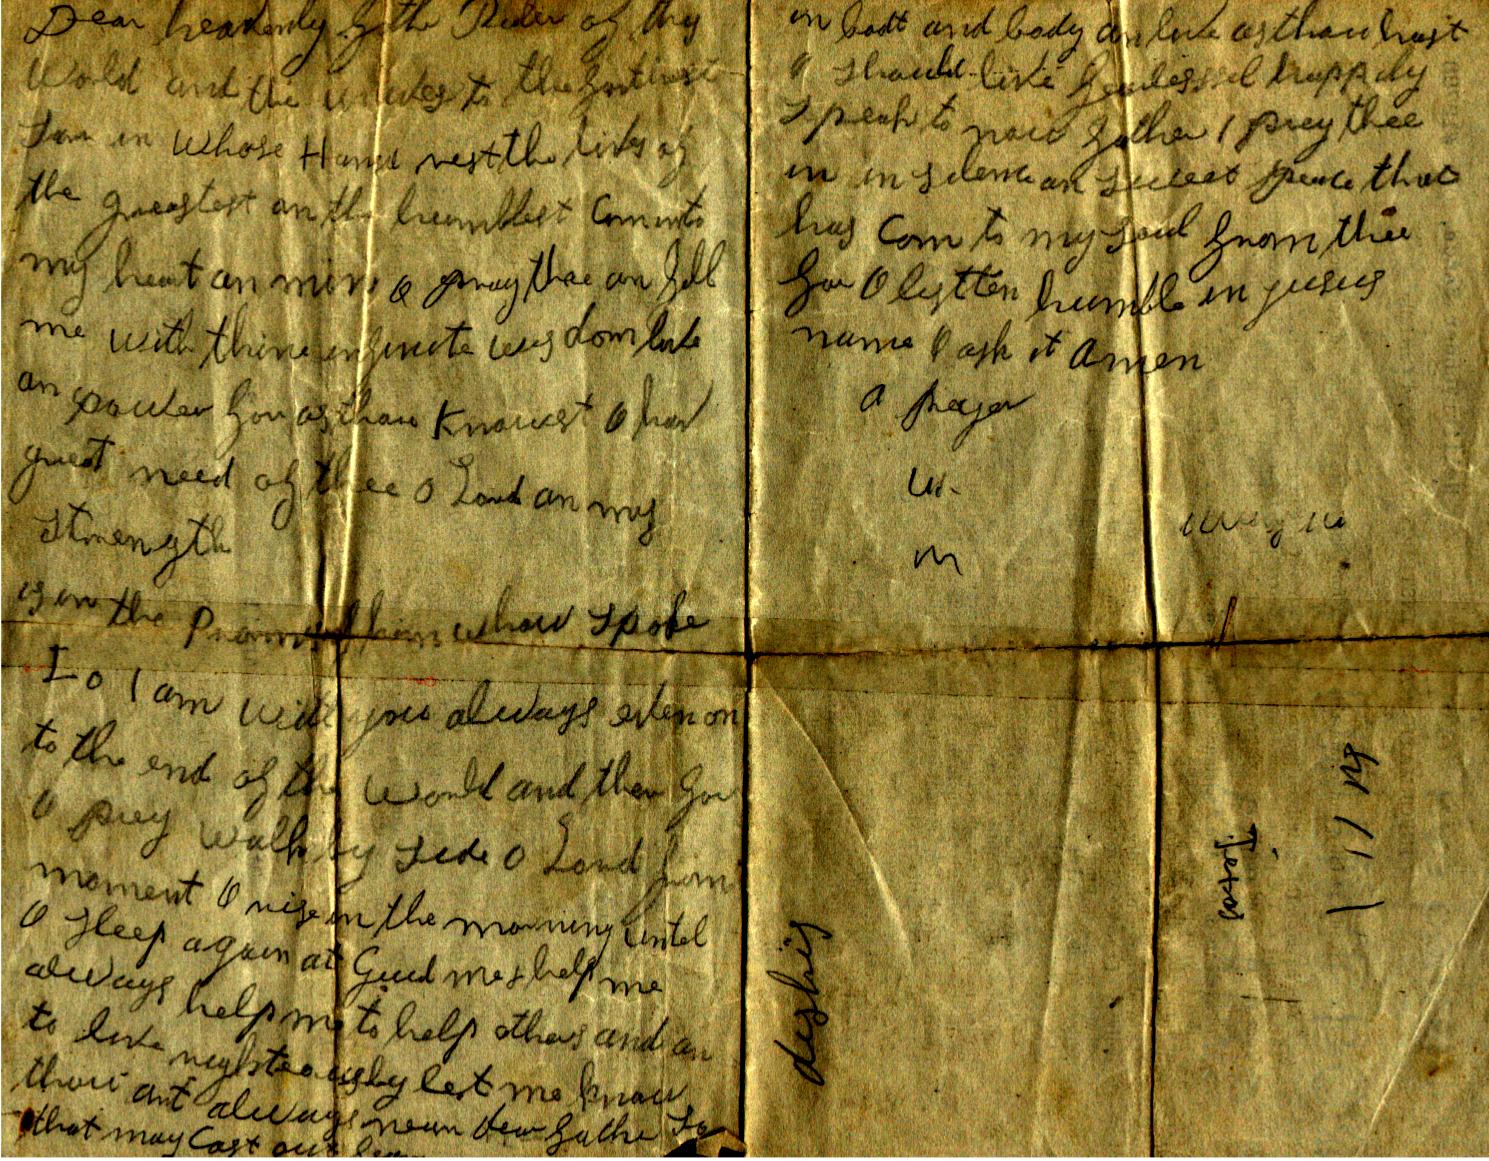 Dear heavenly Fathe Ruler of thy
World and the waves to the
in whose Hand rest the lives of
the greastest an the humblest Com into
my heart an min I pray thee an fill
me with thine infinite wisdom love
an power for as thou Knowest I hav
great need of thee O Lord an my
strength
is in the Promis of him whow spoke
Lo I am with you always even on
to the end of the World and then for
I prey Walk by side O Lord from
moment I rise in the morning until
I sleep again at Guid me & help me
always help me to help others and an
to live righteously let me know
thou art always near dear Fathe So
that may Cast out
in and body an live as thou hast
I should live happily
speak to now Father I prey thee
in in silence an sweet peace that
has Com to my soul from thee
for O listten humble in jesus
name I ask it Amen
A preyer
W.
M
Wayne
Texas